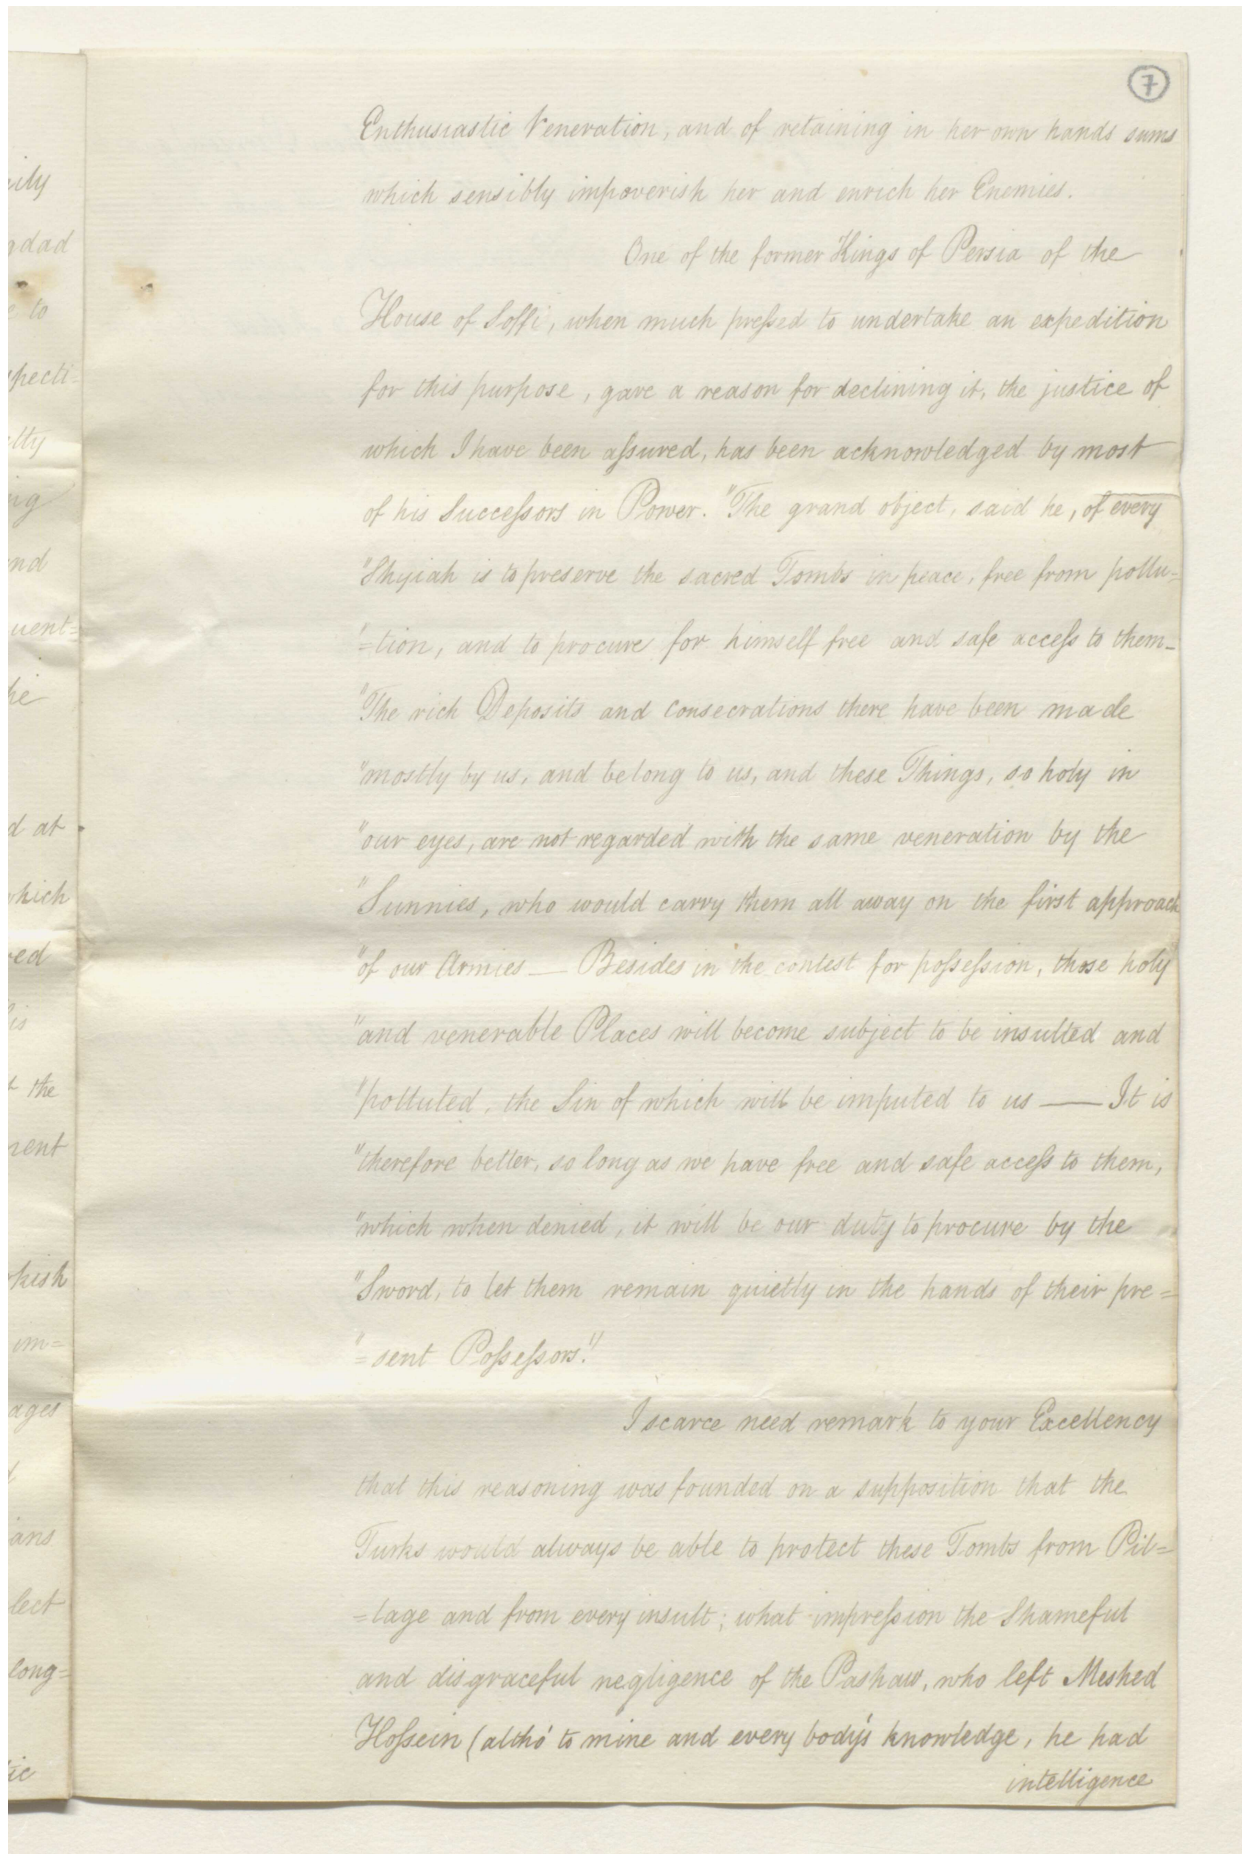 7
Enthusiastic Veneration, and of retaining in her own hands sums
which sensibly impoverish her and enrich her Enemies.
One of the former Kings of Persia of the
House of Soffi, when much preſsed to undertake an expedition
for this purpose, gave a reason for declining it, the justice of
which I have been aſsured, has been acknowledged by most
of his Succeſsors in Power. "The grand object, said he, of every
"Shyiah is to preserve the sacred Tombs in peace, free from pollu=
"=tion, and to procure for himself free and safe acceſs to them_
"The rich Deposits and consecrations there have been made
"mostly by us, and belong to us, and these Things, so holy in
"our eyes, are not regarded with the same veneration by the
"Sunnies, who would carry them all away on the first approach
"of our Armies — Besides in the contest for poſseſsion, those holy
"and venerable Places will become subject to be insulted and
"polluted, the Sin of which will be imputed to us — It is
"therefore better, so long as we have free and safe acceſs to them,
"which when denied, it will be our duty to procure by the
"Sword, to let them remain quietly in the hands of their pre=
"=sent Poſseſsors."
I scarce need remark to your Excellency
that this reasoning was founded on a supposition that the
Turks would always be able to protect these Tombs from Pil=
=lage and from every insult; what impreſsion the Shameful
and disgraceful negligence of the Pashaw, who left Meshed
Hoſsein (altho' to mine and every body's knowledge, he had
intelligence
ily
gdad
e to
specti=
elty
ing
end
uent=
he
d at
which
red
his
t the
ment
kish
im=
ages
d
ians
lect
long=
tic